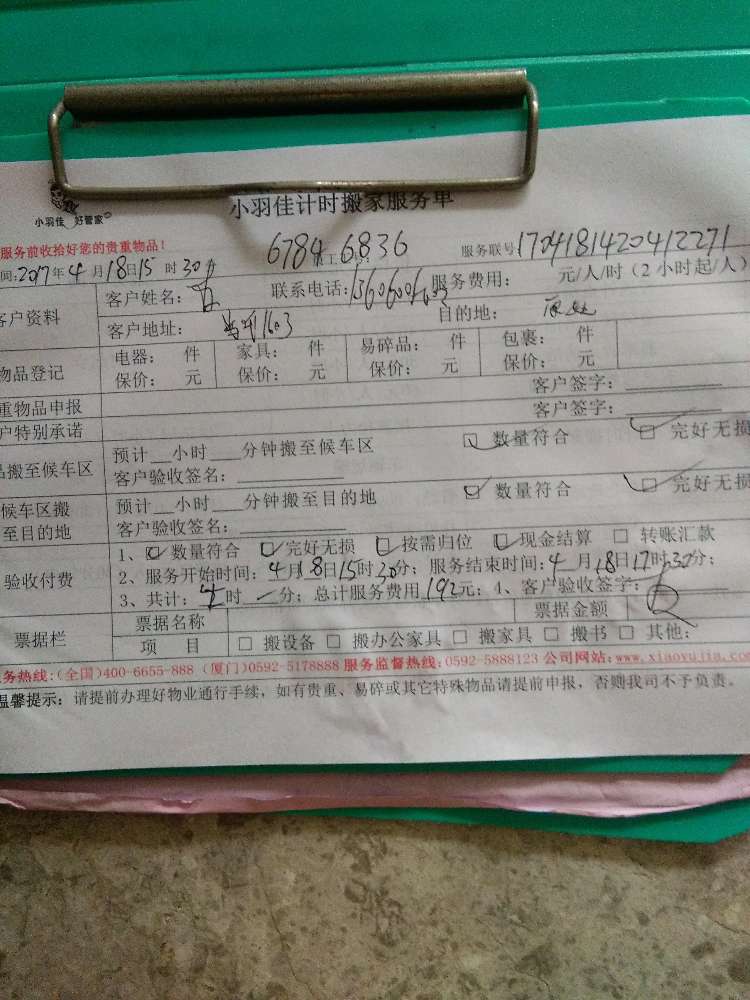 小羽佳 好管家
小羽佳计时搬家服务单
服务前收给好您的贵重物品！
6784 6836
服务联号1704181420412271
间:2017年4月18日15时30分
客户资料 客户姓名: 联系电话: 服务费用: 元/人/时（2小时起/人）
客户地址: 1603 目的地:
物品登记 电器: 件 家具: 件 易碎品: 件 包裹: 件
保价: 元 保价: 元 保价: 元 保价: 元
重物品申报 客户签字:
户特别承诺 客户签字:
品搬至候车区 预计__小时___分钟搬至候车区 数量符合 完好无损
客户验收签名:
候车区搬至目的地 预计__小时___分钟搬至目的地 数量符合 完好无损
客户验收签名:
验收付费 1、数量符合 完好无损 按需归位 现金结算 转账汇款
2、服务开始时间:4月18日15时30分；服务结束时间:4月18日17时30分；
3、共计: 时 分；总计服务费用192元；4、客户验收签字:
票据栏 票据名称 票据金额
项 目 □ 搬设备 □ 搬办公家具 □ 搬家具 □ 搬书 □ 其他:
务热线:(全国)400-6655-888 (厦门)0592-5178888 服务监督热线:0592-5888123 公司网站:www.xiaoyujia.com
温馨提示: 请提前办理好物业通行手续，如有贵重、易碎或其它特殊物品请提前申报，否则我司不予负责。